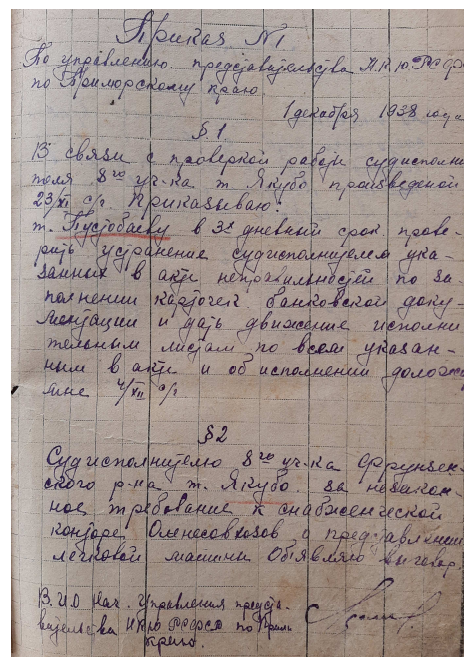 Приказ №1
По управлению представительства Н.К.Ю. РСФ
по Приморскому краю.
1 декабря 1938 года
§ 1
В связи с проверкой работы судисполни
теля 8го уч-ка т. Якубо произведеной
23/XI с/г. Приказываю:
т. Пустобаеву в 3х дневный срок прове-
рить устранение судисполнителем ука-
занных в акте неправильностей по за-
полнении карточек банковской доку-
ментации и дать движение исполни
тельным листам по всем указан-
ным в акте и об исполнении долож
мне 4/XII с/г
§ 2
Судисполнителю 8го уч-ка Фрунзен-
ского р-на т. Якубо за незакон-
ное требование к снабженческой
конторе Оленесовхозов о представлении
легковой машины Объявляю выговор.
В.И.О Нач. Управления предста-
вительства НКЮ РСФСР по Прим
краю.